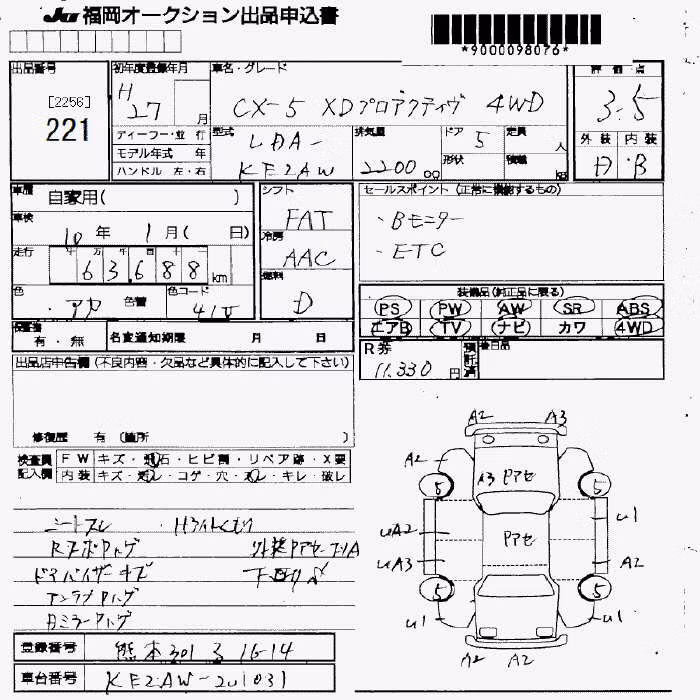 JU 福岡オークション出品申込書
*9000098076*
出品番号
[2256]
221
初年度登録年月
H 27 月
車名・グレード
CX-5 XDプロアクティヴ 4WD
評価点
3.5
外装 内装
A B
ディーラー・並行
モデル年式 年
ハンドル 左・右
型式
LDA-
KE2AW
排気量
2200 cc
ドア
5
形状
定員
人
積載
kg
車歴
自家用( )
車検
10 年 1 月 ( 日)
走行
十 万 千
63,688 km
色
アカ 色替
色コード
41V
シフト
FAT
冷房
AAC
燃料
D
セールスポイント (正常に機能するもの)
・Bモニター
・ETC
装備品(純正品に限る)
PS PW AW SR ABS
エアB TV ナビ カワ 4WD
保証書
有・無
名変通知期限 月 日
R券
11,330 円
預託済
後日品
出品店申告欄 (不良内容・欠品など具体的に記入して下さい)
修復歴 有 (箇所 )
検査員
記入欄
FW キズ・飛石・ヒビ割・リペア跡・X要
内装 キズ・スレ・コゲ・穴・ヨゴレ・キレ・破レ
シートスレ ・Hライトくもり
ドアバイザーキズ 下回りサビ
A2 A3
A2 A3 Pアセ
5 5
uA2 Pアセ u1
uA3 A2
5 5
u1 u1
A2 A2
登録番号
熊本301 る 16-14
車台番号
KE2AW-201031